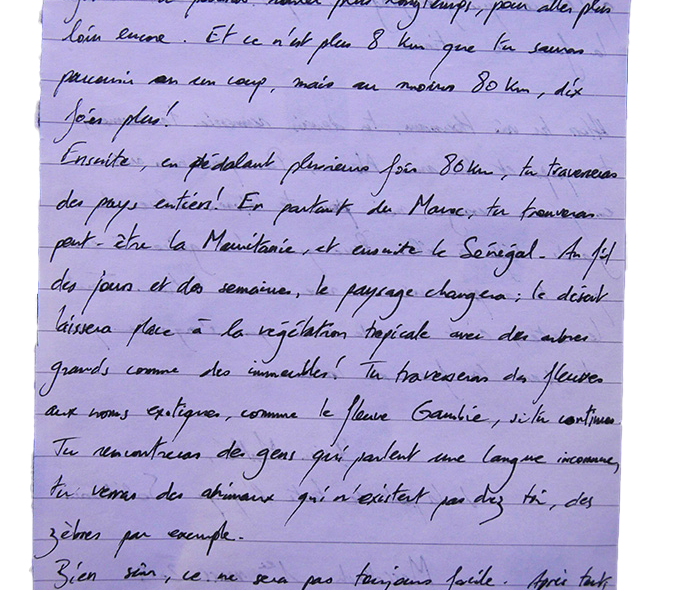 pouvoir rouler plus longtemps, pour aller plus
loin encore. Et ce n'est plus 8 km que tu sauras
parcourir en un coup, mais au moins 80 km, dix
fois plus!
Ensuite, en pédalant plusieurs fois 80 km, tu traverseras
des pays entiers! En partant du Maroc, tu trouveras
peut-être la Mauritanie, et ensuite le Sénégal. Au fil
des jours et des semaines, le paysage changera; le désert
laissera place à la végétation tropicale avec des arbres
grands comme des immeubles! Tu traverseras des fleuves
aux noms exotiques, comme le fleuve Gambie, si tu continues
Tu rencontreras des gens qui parlent une langue inconnue,
tu verras des animaux qui n'existent pas chez toi, des
zèbres par exemple.
Bien sûr, ce ne sera pas toujours facile. Après tout,